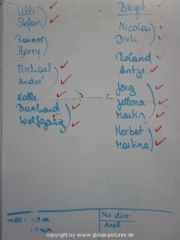 Ulli
Stefan
Rainer
Harry
Michael
Andre
Kalle
Burkhard
Wolfgang
Birgit
Nicolai
Dirk
Roland
Antje
Jörg
Martin
Norbert
Martina
No dice
Axel
copyright by www.global-pictures.de